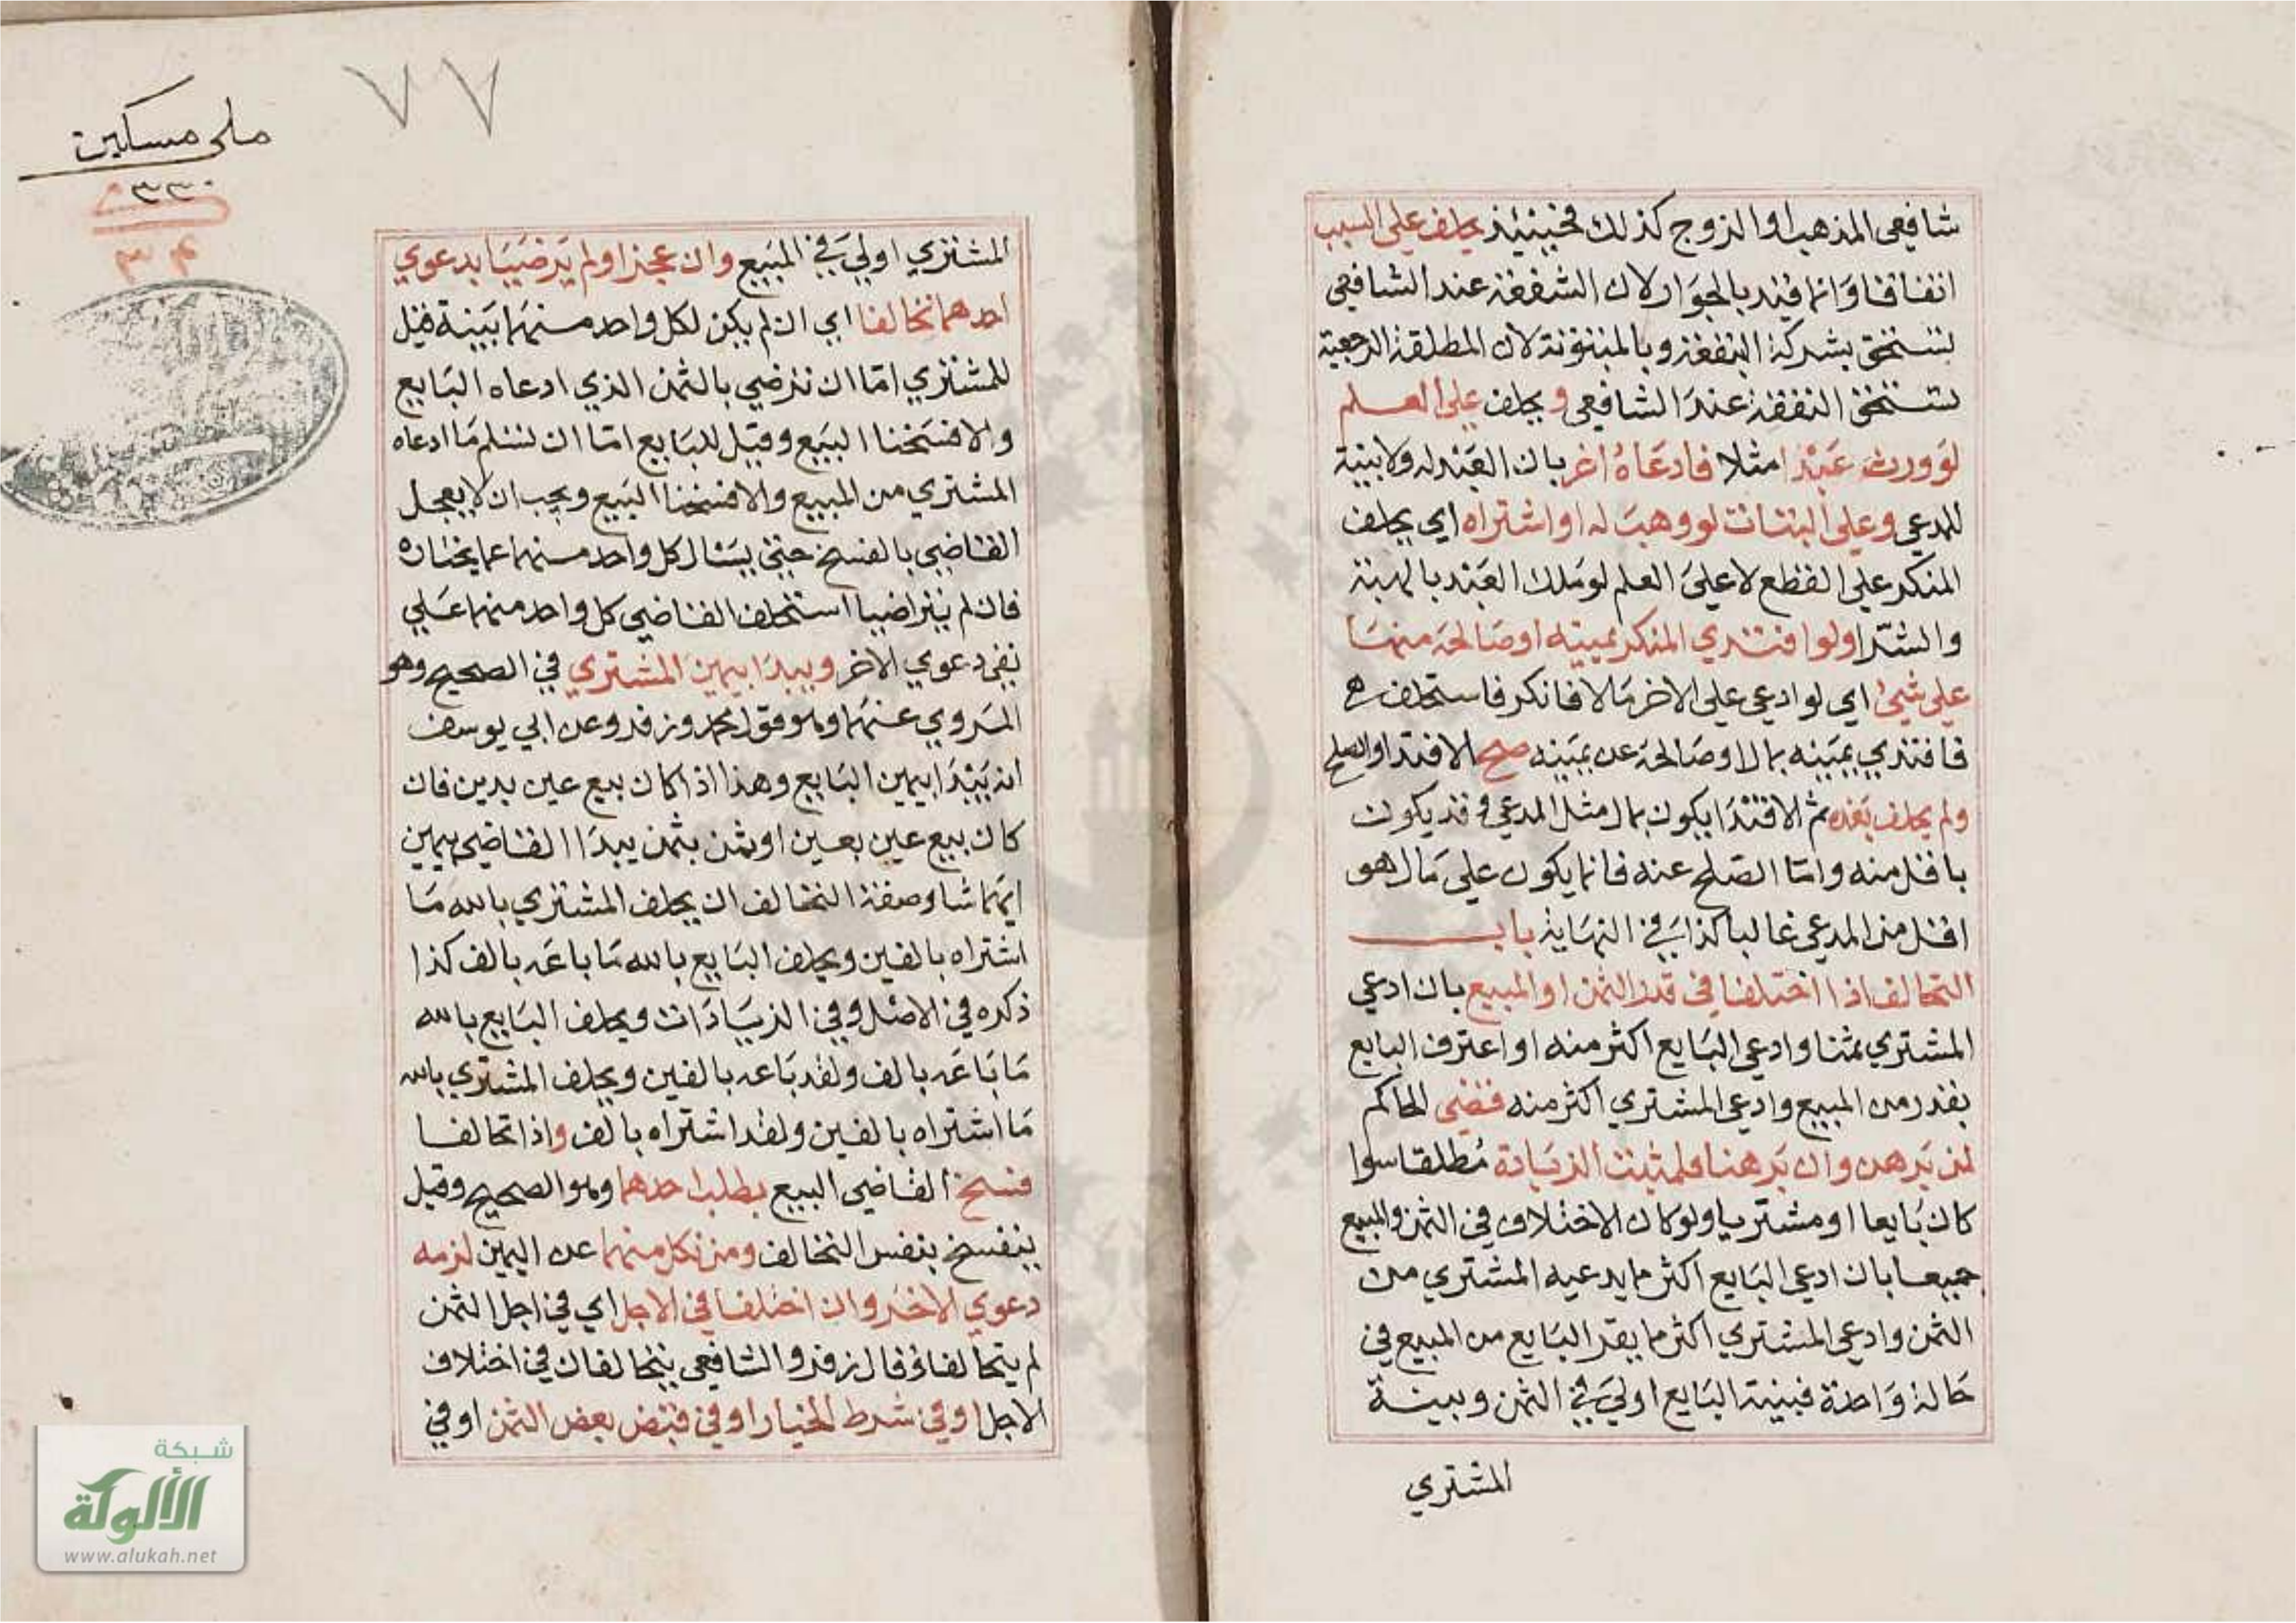 شافعي المذهب او الزوج كذلك فحينئذ يحلف علي السبب
اتفاقا وانما قيد بالجوار لان الشفعة عند الشافعي
تستحق بشركة البقعة وبالمبتوتة لان المطلقة الرجعية
تستحق النفقة عند الشافعي ويحلف علي العلم
لو ورث عبدا مثلا فادعاه اخر بان العبد له ولا بينة
للمدعي وعلي البتات لو وهب له او اشتراه اي يحلف
المنكر علي القطع لا علي العلم لو ملك العبد بالهبة
والشرا ولو افتدي المنكر يمينه او صالحه منها
علي شيئ اي لو ادعي علي الاخر مالا فانكر فاستحلف
فافتدي يمينه بمال او صالحه عن يمينه صح الافتدا والصلح
ولم يحلف بعده ثم الافتدا يكون بمال مثل المدعي وقد يكون
باقل منه واما الصلح عنه فانما يكون علي مال هو
اقل من المدعي غالبا كذا في النهاية باب
التحالف اذا اختلفا في قدر الثمن او المبيع بان ادعي
المشتري ثمنا وادعي البايع اكثر منه او اعترف البايع
بقدر من المبيع وادعي المشتري اكثر منه قضي الحاكم
لمن برهن وان برهنا فلمثبت الزيادة مطلقا سوا
كان بايعا او مشتريا ولو كان الاختلاف في الثمن والمبيع
جميعا بان ادعي البايع اكثر ما يدعيه المشتري من
الثمن وادعي المشتري اكثر ما يقر البايع من المبيع في
حالة واحدة فبينة البايع اولي في الثمن وبينة
المشتري
٧٧
ملى مسكين
٣٣٠
المشتري اولي في المبيع وان عجزا ولم يرضيا بدعوي
احدهما تحالفا اي ان لم يكن لكل واحد منهما بينة قيل
للمشتري اما ان ترضي بالثمن الذي ادعاه البايع
والا فسخنا البيع وقيل للبايع اما ان تسلم ما ادعاه
المشتري من المبيع والا فسخنا البيع ويجب ان لا يعجل
القاضي بالفسخ حتي يسال كل واحد منهما عما يختاره
فان لم يتراضيا استحلف القاضي كل واحد منهما علي
نفي دعوي الاخر ويبدا بيمين المشتري في الصحيح وهو
المروي عنهما وهو قول محمد وزفر وعن ابي يوسف
انه يبدا بيمين البايع وهذا اذا كان بيع عين بدين فان
كان بيع عين بعين او ثمن بثمن يبدا القاضي بيمين
ايهما شا وصفة التحالف ان يحلف المشتري بالله ما
اشتراه بالفين ويحلف البايع بالله ما باعه بالف كذا
ذكره في الاصل وفي الزيادات ويحلف البايع بالله
ما باعه بالف ولقد باعه بالفين ويحلف المشتري بالله
ما اشتراه بالفين ولقد اشتراه بالف واذا تحالفا
فسخ القاضي البيع بطلب احدهما وهو الصحيح وقيل
ينفسخ بنفس التحالف ومن نكل منهما عن اليمين لزمه
دعوي الاخر وان اختلفا في الاجل اي في اجل الثمن
لم يتحالفا وقال زفر والشافعي يتحالفان في اختلاف
الاجل او في شرط الخيار او في قبض بعض الثمن او في
شبكة
الألوكة
www.alukah.net